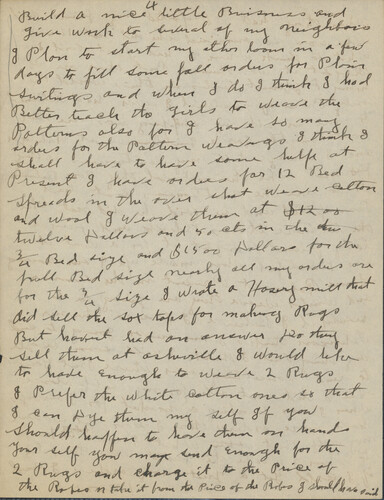 4
Build a nice little Buisness and
Give work to several of my neighbors
I Plan to start my other loom in a few
days to fill some fall orders for Plain
Suitings and when I do I think I had
Better teach the girls to weave the
Patterns also for I have so many
orders for the Pattern weavings I think I
shall have to have some help at
Present I have orders for 12 Bed
spreads in the over shot weave cotton
and wool I weave them at $12.00
twelve Dollars and 50 cts in the
3/4 Bed size and $15.00 Dollars for the
full Bed size nearly all my orders are
for the 3/4 size I wrote a Hosery mill that
did sell the sox tops for making Rugs
But havent had an answer Do they
sell them at asheville I would like
to have enough to weave 2 Rugs
I Prefer the white cotton ones so that
I can Dye them my self If you
should happen to have them on hand
your self you may send enough for the
2 Rugs and charge it to the Price of
the Robes or take it from the Price of the Robes I should have said